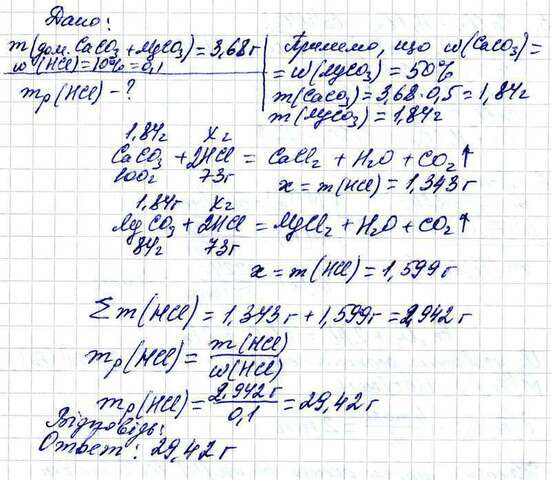 Дано:
m(дом. CaCO₃ + MgCO₃) = 3,68 г
w(HCl) = 10% = 0,1
mр(HCl) - ?
Приймемо, що w(CaCO₃) =
= w(MgCO₃) = 50%
m(CaCO₃) = 3,68·0,5 = 1,84г
m(MgCO₃) = 1,84г
1,84г xг
CaCO₃ + 2HCl = CaCl₂ + H₂O + CO₂↑
100г 73г
x = m(HCl) = 1,343г
1,84г xг
MgCO₃ + 2HCl = MgCl₂ + H₂O + CO₂↑
84г 73г
x = m(HCl) = 1,599г
Σm(HCl) = 1,343г + 1,599г = 2,942 г
mр(HCl) = m(HCl) / w(HCl)
mр(HCl) = 2,942г / 0,1 = 29,42г
Відповідь:
Ответ: 29,42 г